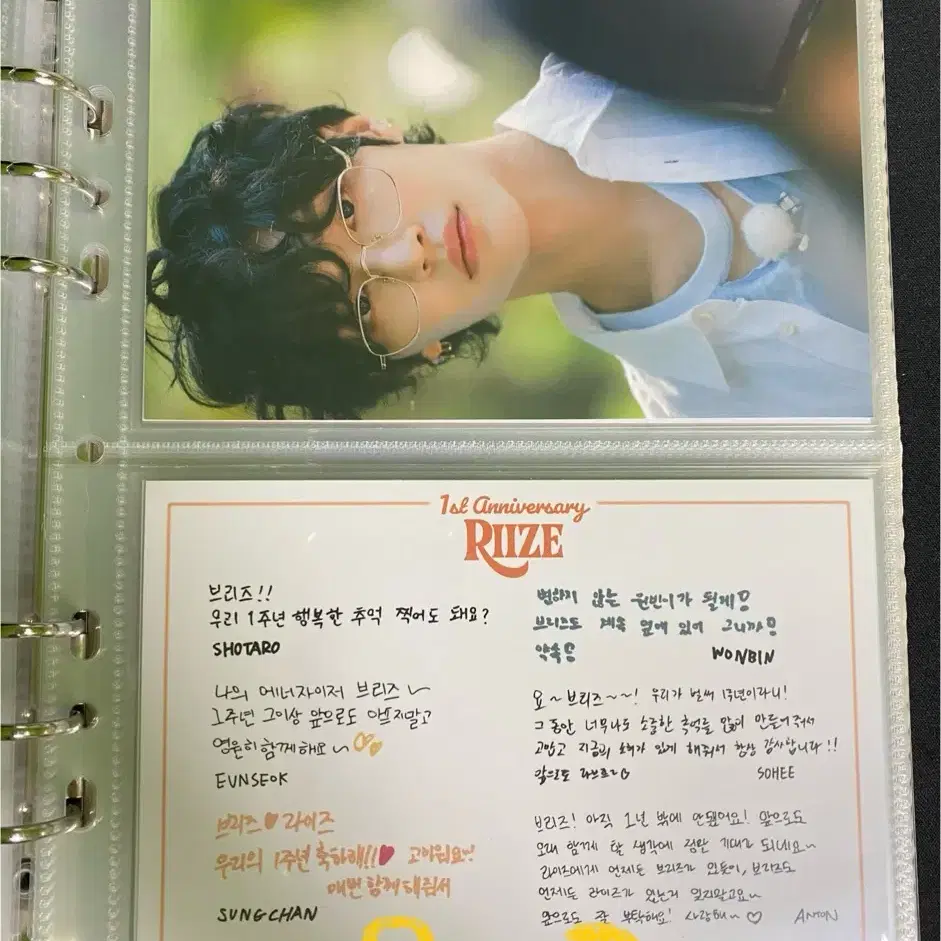 1st Anniversary
RIIZE
브리즈!!
우리 1주년 행복한 추억 찍어도 돼요?
SHOTARO
나의 에너자이저 브리즈~
1주년 그이상 앞으로도 아프지말고
영원히 함께해요~
EUNSEOK
브리즈♥라이즈
우리의 1주년 축하해!!♥ 고마워요~!
매번 함께 해줘서
SUNGCHAN
변하지 않는 원빈이가 될게♡
브리즈도 계속 옆에 있어 그니까♡
약속♡
WONBIN
요~브리즈~~! 우리가 벌써 1주년이라니!
그동안 너무나도 소중한 추억를 많이 만들어줘서
고맙고 지금의 소희가 있게 해줘서 항상 감사합니다!!
앞으로도 라브르~♡
SOHEE
브리즈! 아직 1년 밖에 안됐어요! 앞으로도
오래 함께 할 생각에 정말 기대가 되네요~
라이즈에게 언제든 브리즈가 있듯이, 브리즈도
언제든 라이즈가 있는거 잊지말고요~
앞으로도 잘 부탁해요! 사랑해~♡
ANTON